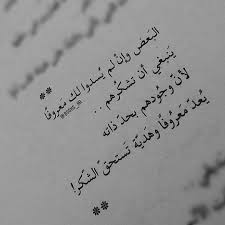 البَعض وَإنْ لم يسدوا لك معروفًا **
يَنبغي أن تشكرهم ..
لأنّ وجُودهم بحدّ ذاته
يُعدّ مَعرُوفًا وهَديّة تَستحقّ الشّكر!
**